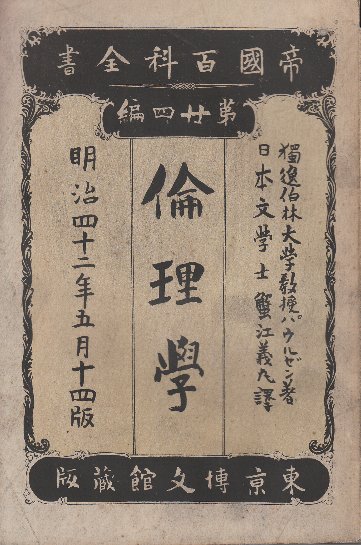 帝國百科全書
第廿四編
獨逸伯林大學教授パウルゼン著
日本文學士蟹江義丸譯
倫理學
明治四十二年五月十四版
東京博文館藏版